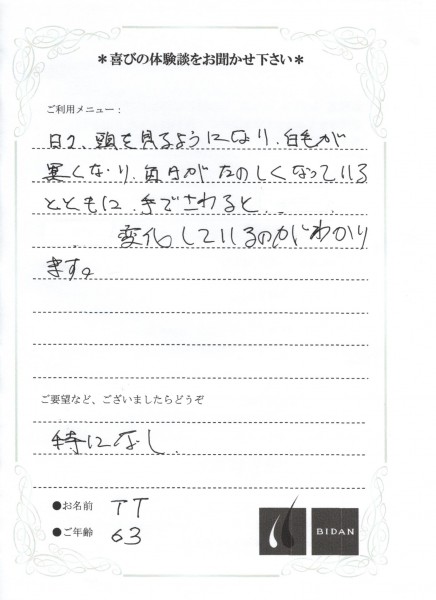 ＊喜びの体験談をお聞かせ下さい＊
ご利用メニュー：
日々、頭を見るようになり、白毛が
黒くなり、毎日がたのしくなっている
とともに、手でさわると、
変化しているのがわかり
ます。
ご要望など、ございましたらどうぞ
特になし、
●お名前 TT
●ご年齢 63
BIDAN